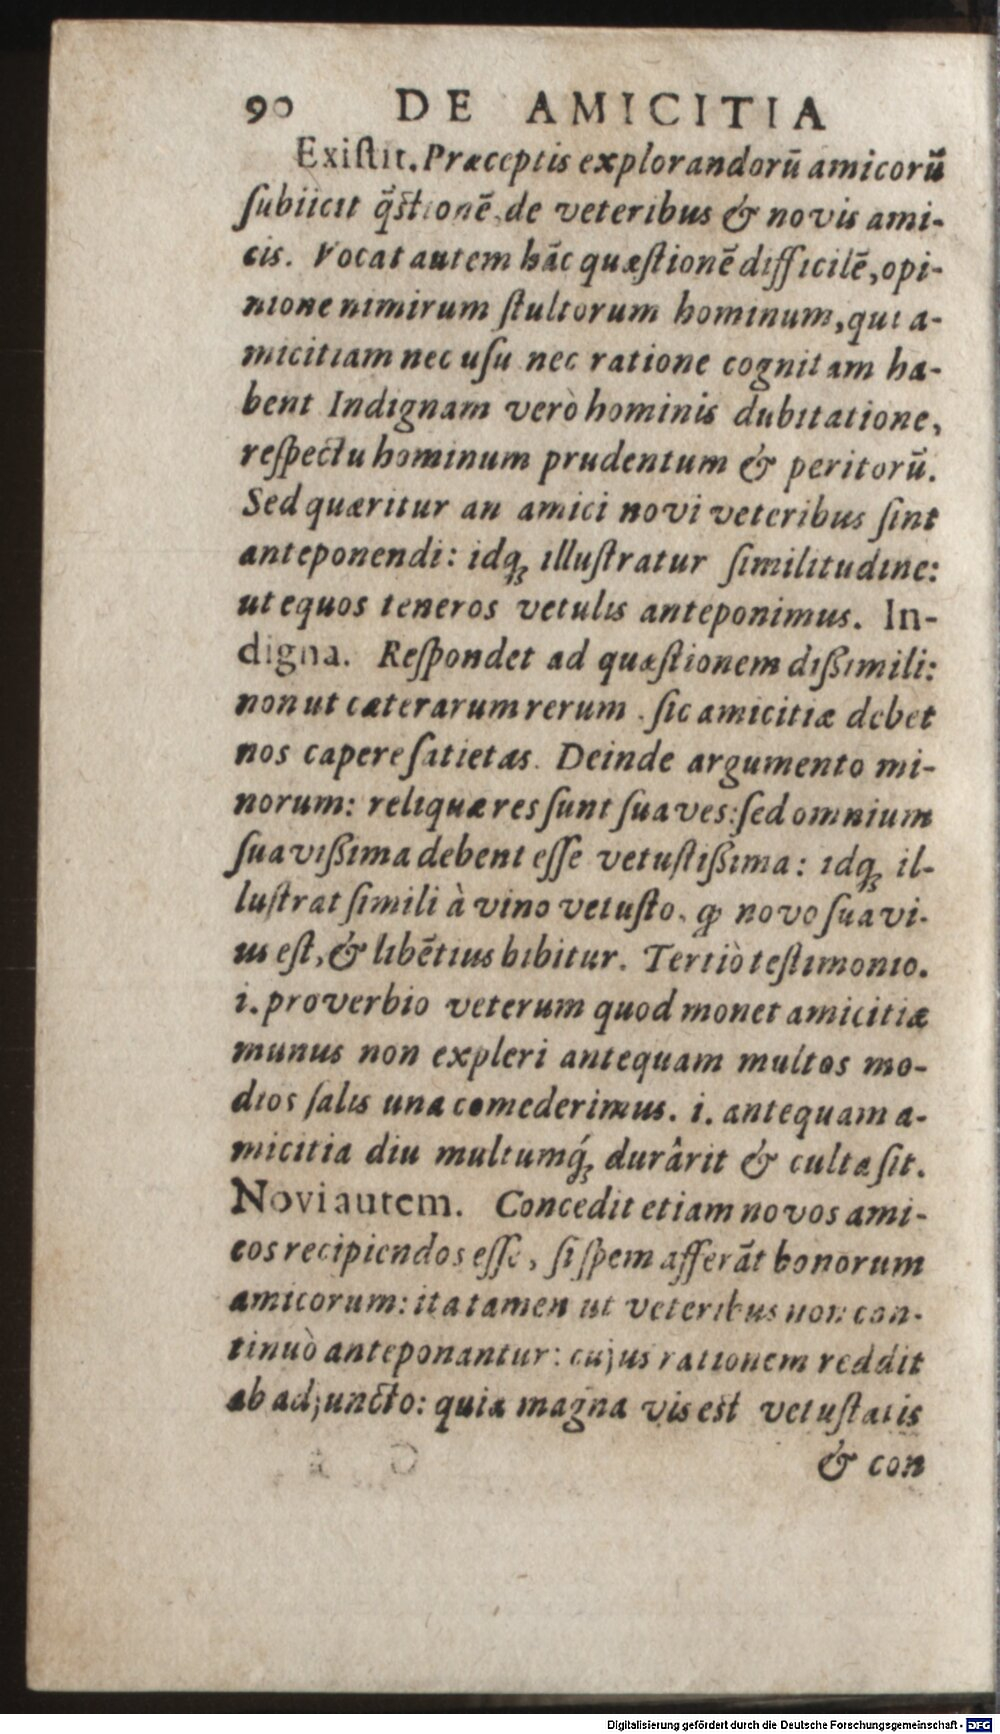 90 DE AMICITIA
Exiſtit. Præceptis explorandorū amicorū
ſubiicit q̄stionē de veteribus & novis ami-
cis. Vocat autem hāc quæſtionē difficilē, opi-
nione nimirum ſtultorum hominum, qui a-
micitiam nec uſu nec ratione cognitam ha-
bent Indignam verò hominis dubitatione,
reſpectu hominum prudentum & peritorū.
Sed quæritur an amici novi veteribus ſint
anteponendi: idq́ꝫ illuſtratur ſimilitudine:
ut equos teneros vetulis anteponimus. In-
digna. Reſpondet ad quæſtionem dißimili:
non ut cæterarum rerum. ſic amicitiæ debet
nos capere ſatietas. Deinde argumento mi-
norum: reliquæ res ſunt ſuaves: ſed omnium
ſuavißima debent eſſe vetuſtißima: idq́ꝫ il-
luſtrat ſimili à vino vetuſto, qđ novo ſuavi-
us eſt, & libētius bibitur. Tertiò teſtimonio.
i. proverbio veterum quod monet amicitiæ
munus non expleri antequam multos mo-
dios ſalis una comederimus. i. antequam a-
micitia diu multumq́ꝫ durârit & culta ſit.
Novi autem. Concedit etiam novos ami-
cos recipiendos eſſe, ſi ſpem afferāt bonorum
amicorum: ita tamen ut veteribus non con-
tinuò anteponantur: cujus rationem reddit
ab adjuncto: quia magna vis est vetuſtatis
& con
Digitalisierung gefördert durch die Deutsche Forschungsgemeinschaft - DFG